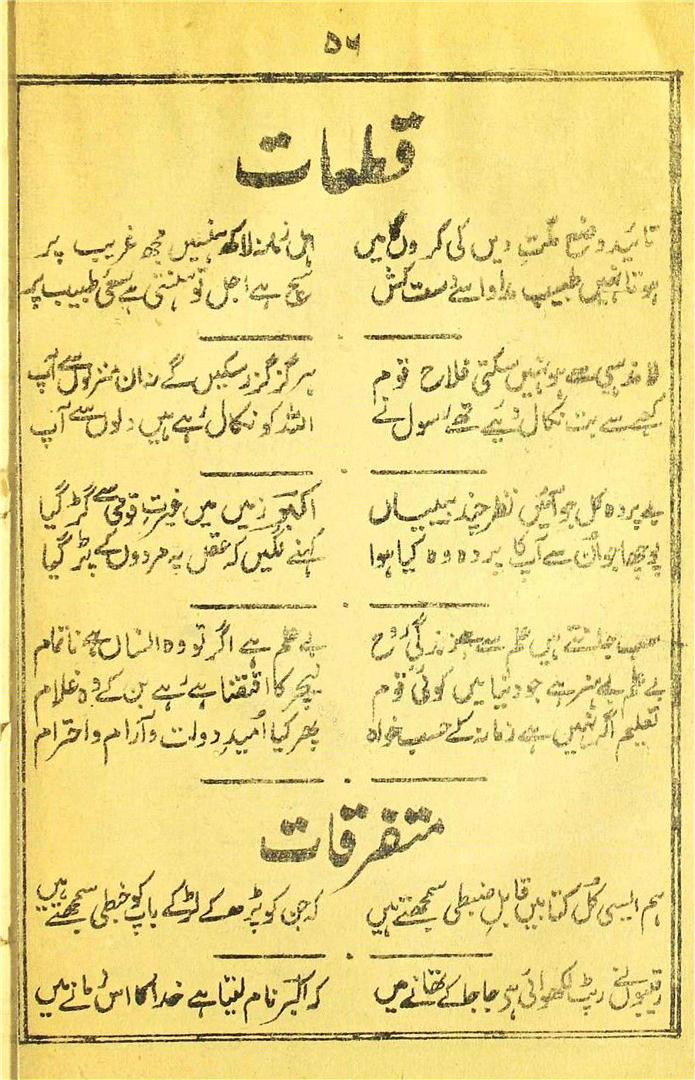 ۵۶
قطعات
تائید وضع ملت دیں کی کروں گا میں اہل زمانہ لاکھ ہنسیں مجھ غریب پر
ہوتا نہیں طبیب مداوا سے دست کش سچ ہے اجل تو ہنستی ہے سعئ طبیب پر
لا مذہبی سے ہو نہیں سکتی فلاح قوم ہرگز گزر سکیں گے نہ ان منزلوں سے آپ
کعبے سے بت نکال دئیے تھے رسول نے اللہ کو نکال رہے ہیں دلوں سے آپ
بے پردہ کل جو آئیں نظر چند بیبیاں اکبر زمیں میں غیرت قومی سے گڑ گیا
پوچھا جو ان سے آپ کا پردہ وہ کیا ہوا کہنے لگیں کہ عقل پہ مردوں کے پڑ گیا
سب جانتے ہیں علم سے ہے زندگئ روح بے علم ہے اگر تو وہ انساں ہے ناتمام
بے علم بے ہنر ہے جو دنیا میں کوئی قوم نیچر کا اقتضا ہے رہے بن کے وہ غلام
تعلیم اگر نہیں ہے زمانہ کے حسب خواہ پھر کیا اُمیدِ دولت و آرام و احترام
متفرقات
ہم ایسی کُل کتابیں قابلِ ضبطی سمجھتے ہیں کہ جن کو پڑھ کے لڑکے باپ کو خبطی سمجھتے ہیں
رقیبوں نے رپٹ لکھوائی ہے جا جا کے تھانے میں کہ اکبر نام لیتا ہے خدا کا اس زمانے میں